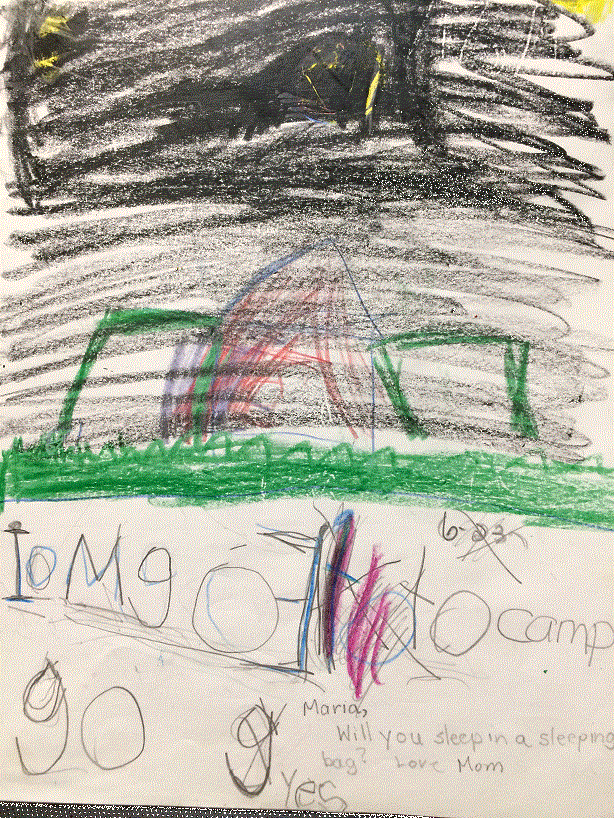 6-23
I oMg O to camp
go g
Maria,
Will you sleep in a sleeping
bag? Love Mom
yes